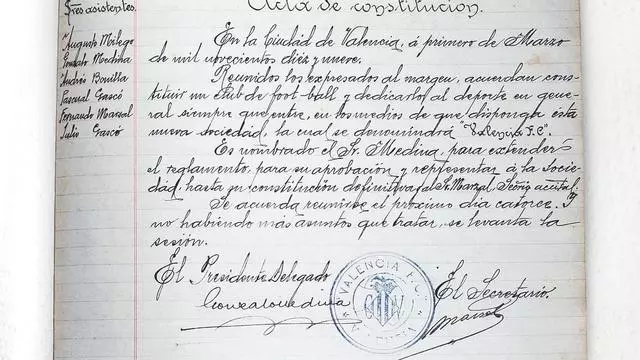 Acta de constitución.
Sres. asistentes.
Augusto Milego
Gonzalo Medina
Andrés Bonilla
Pascual Gascó
Fernando Marzal
Julio Gascó
En la Ciudad de Valencia, á primero de Marzo
de mil novecientos diez y nueve.
Reunidos los expresados al margen, acuerdan cons-
tituir un Club de foot-ball y dedicarlo, al deporte en gene-
ral siempre que entre, en los medios de que disponga esta
nueva sociedad, la cual se denominará "Valencia F.C."
Es nombrado el Sr. Medina, para extender
el reglamento, para su aprobación y representar á la Socie-
dad, hasta su constitución definitiva, el Sr. Marzal,
Se acuerda reunirse el próximo dia catorce. Y
no habiendo más asuntos que tratar, se levanta la
sesión.
El Presidente Delegado
Gonzalo Medina
VALENCIA F.C.
El Secretario.
Marzal